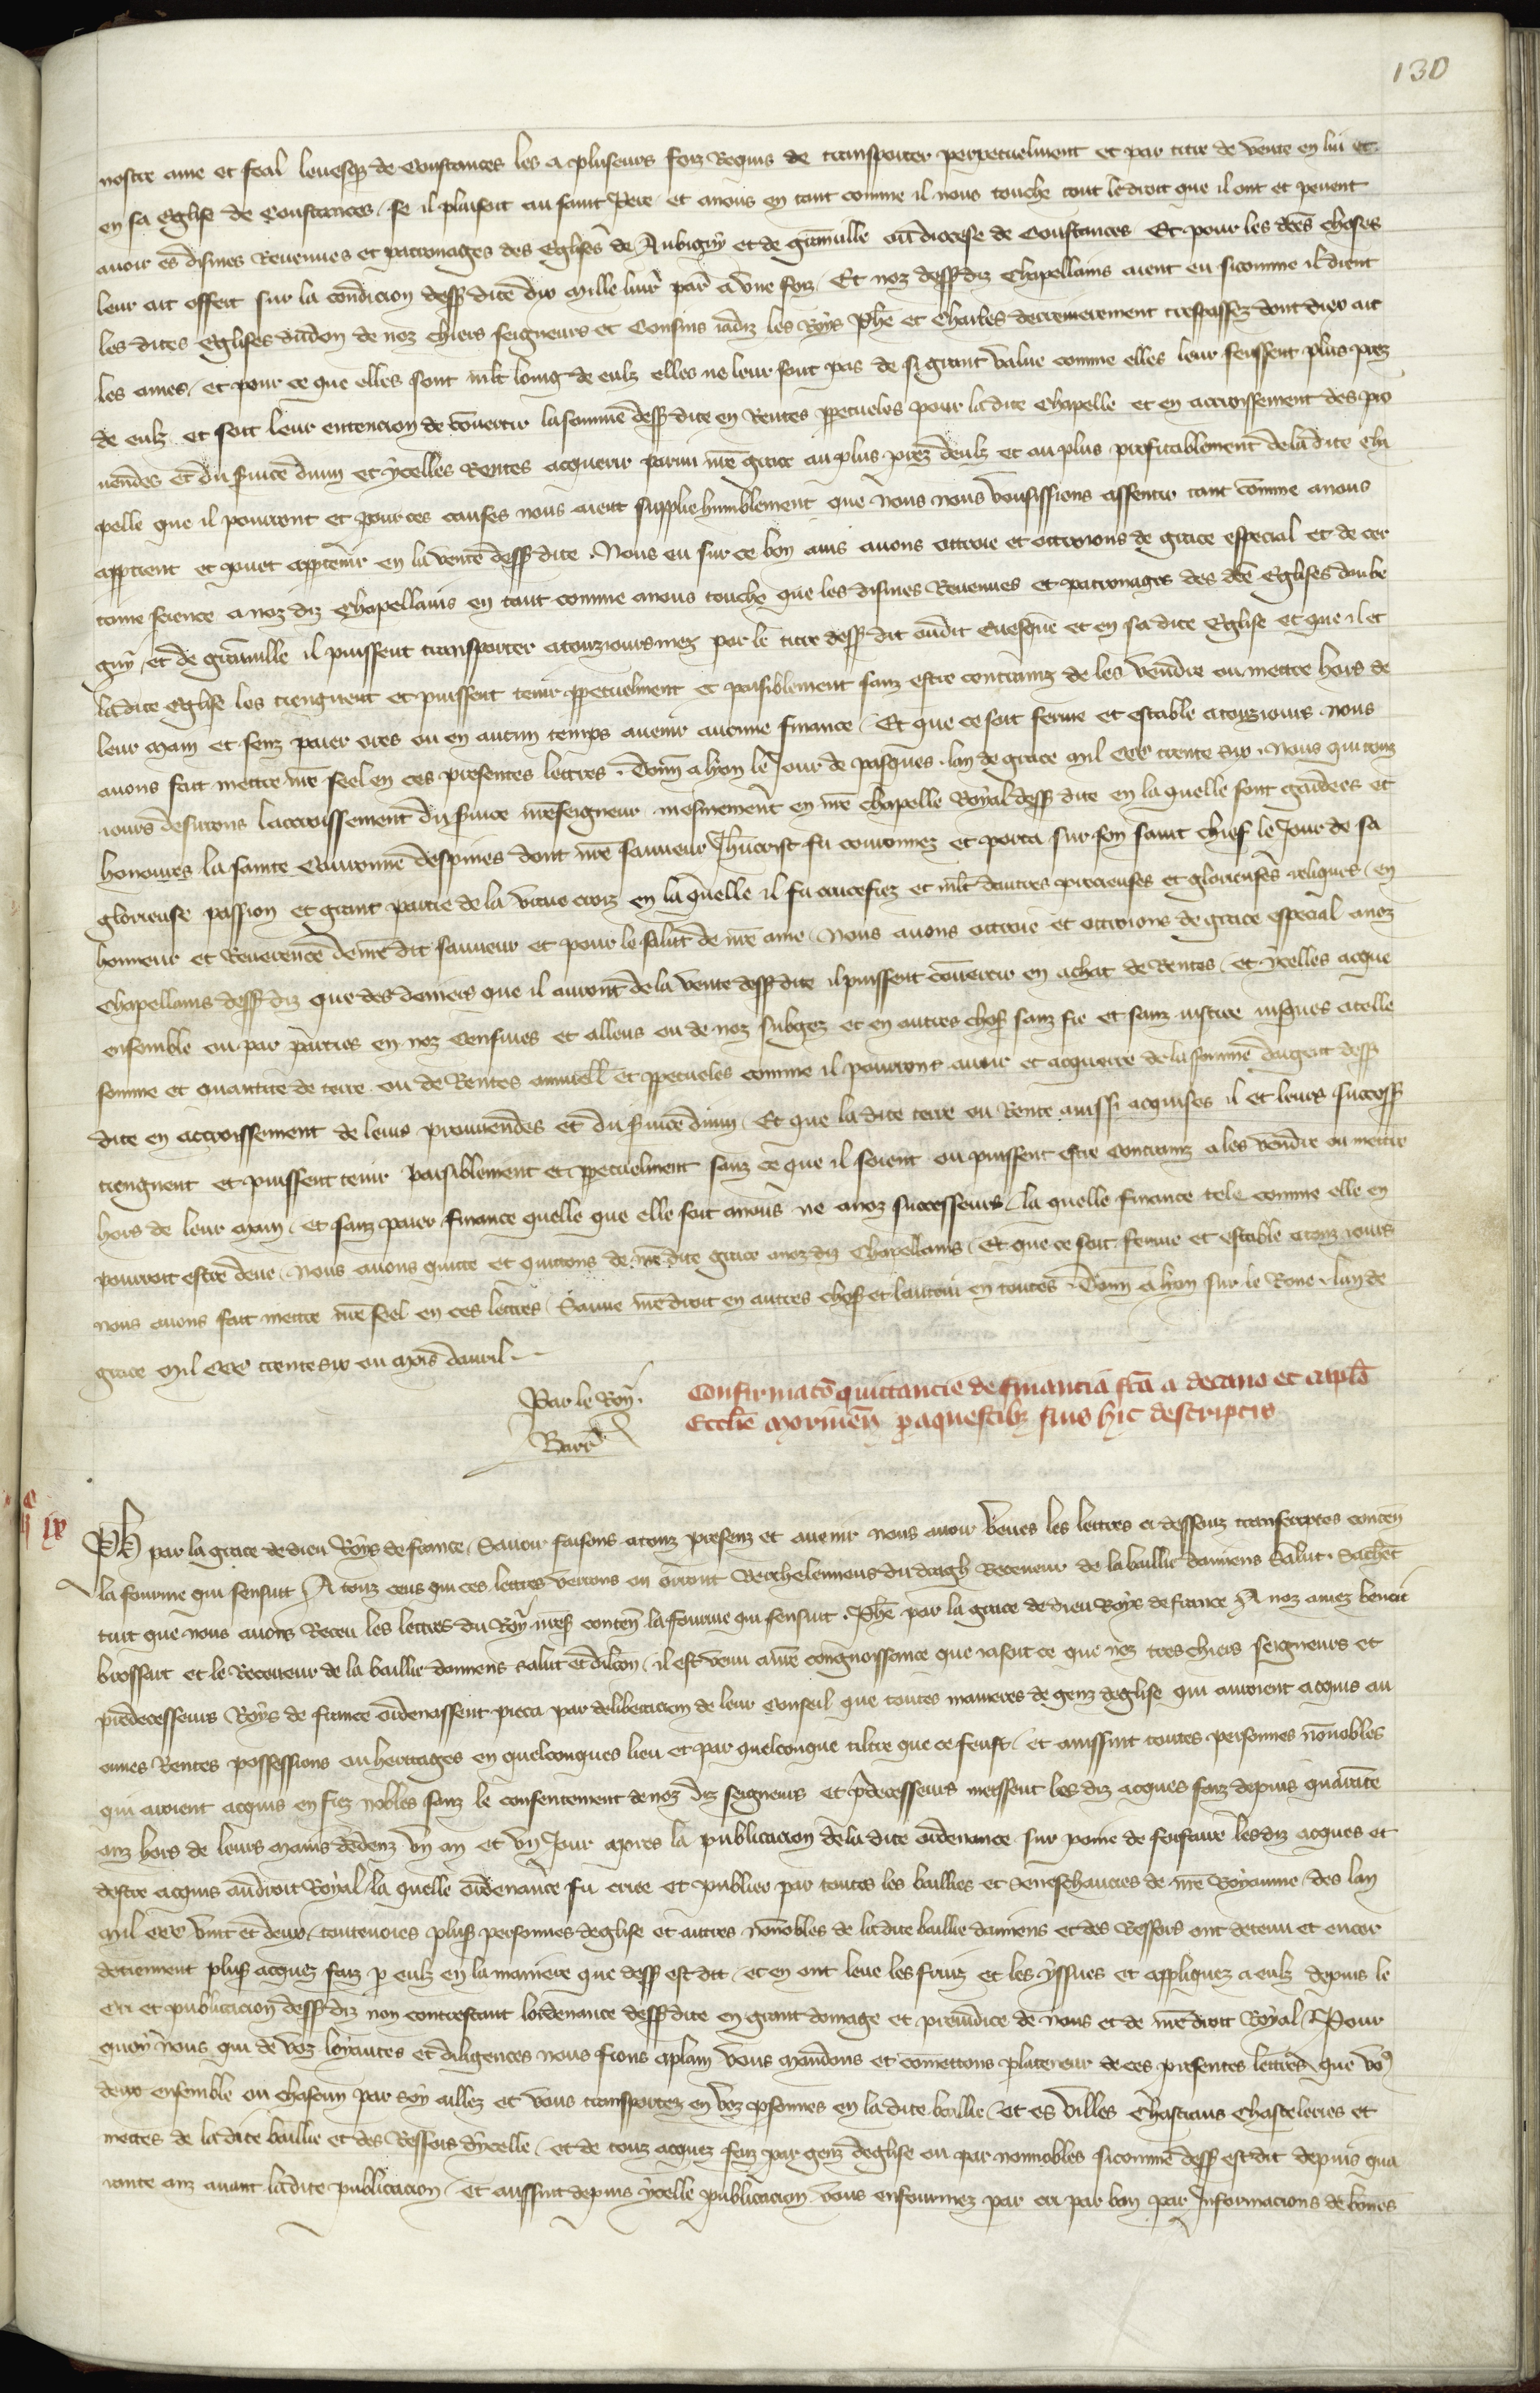 130
nostre ame et feal levesque de Constances les a pluseurs foiz Requis de transporter perpetuelment et par titre de vente en lui et
en sa Eglise de Constances, se il plaisoit au saint Pere et a nous en tant comme il nous touche tout le droit que il ont et peuent
avoir es disines Revenues et patronages des Eglises de Aubigny et de Granville ou diocese de Constances Et pour les dces choses
leur ait offert sur la condicion dessus dite dix mille livr par a une foiz, Et noz dessus diz Chapellains aient eu si comme il dient
les dites Eglises du don de noz chiers seigneurs et Cousins iadiz les Roys Phe et Charles derrenierement trespassez dont diex ait
les ames, et pour ce que elles sont mlt loing de eulz elles ne leur sont pas de si grant value comme elles leur feussent plus prez
de eulz et soit leur entencion de convertir la somme dessus dite en Rentes ppetueles pour la dite Chapelle et en accroissement des pro
vendes et du service divin et ycelles Rentes acquerir parmi nre grace au plus prez deulz et au plus profitablement de la dite cha
pelle que il pourront et pour ces causes nous aient supplie humblement que nous nous vousissions assentir tant comme a nous
appartient et puet appartenir en la vente dessus dite. Nous eu sur ce bon avis avons ottroie et ottroions de grace especial et de cer
taine science a noz diz Chapellains en tant comme a nous touche que les disines Revenues et patronages des dce Eglises daube
gny et de granville il puissent transporter a touzioursmez par le titre dessus dit oudit Evesque et en sa dite Eglise et que il et
ladite Eglise les tiengnent et puissent tenir ppetuelment et paisiblement sanz estre contrainz de les vendre ou mettre hors de
leur main et senz paier ores ou en aucun temps avenir aucune finance, Et que ce soit ferme et estable a touziours nous
avons fait mettre nre seel en ces presentes lettres. Donn a lyon le Jour de pasques lan de grace mil CCC trente six. Nous qui touz
iours desirons laccroissement du service nreseigneur mesmement en nre Chapelle Royal dessus dite en la quelle sont gardees et
honorees la sainte Couronne despines dont nre sauveur Jhucrist fu couronnez et porta sur son saint chief le Jour de sa
glorieuse passion et grant partie de la vraie croiz en la quelle il fu crucefiez et mlt dautres precieuses et glorieuses reliques, en
honneur et Reverence de nre dit sauveur et pour le salut de nre ame, Nous avons ottroie et ottroions de grace especial a noz
Chapellains dessus diz que des deniers que il auront de la vente dessus dite il puissent convertir en achat de Rentes, et ycelles acque
ensemble ou par parties en noz Censives et alleus ou de noz subgez et en autres choses sanz fie et sanz iustice iusques a celle
somme et quantite de terre ou de Rentes annuell et ppetueles comme il pourront avoir et acquerre de la somme dargent dess
dite en accroissement de leurs prouvendes et du service divin, Et que la dite terre ou Rente aussi acquises il et leurs success
tiengnent et puissent tenir paisiblement et ppetuelment sanz ce que il soient ou puissent estre contrainz a les vendre ou mettre
hors de leur main, et sanz paier finance quelle que elle soit a nous ne a noz successeurs, la quelle finance tele comme elle en
pourroit estre deue, nous avons quitte et quittons de nre dite grace a noz diz Chapellains, Et que ce soit ferme et estable a touz iours
nous avons fait mettre nre seel en ces lettres, Sauve nre droit en autres choses et lautrui en toutes. Donn a lyon sur le Rone lan de
grace mil CCC trente six ou mois davril.
Par le Roy.
Barr
Confirmato quittancie de financia fca a decano et capitlo
Ecclie Morinen p aquestibz suis hic descriptis
Ph par la grace de dieu Roys de france, Savoir faisons a touz presenz et avenir nous avoir veues les lettres ci dessouz transcriptes conten
la fourme qui sensuit A touz ceus qui ces lettres verrons ou orront Receveur de la baillie damiens Salut. Sachent
tuit que nous avons Receu les lettres du Roy nres conten la fourme qui sensuit. Phe par la grace de dieu Roys de france A noz amez benoit
brossart et le Receveur de la baillie damiens salut et dilcon, il est venu a nre congnoissance que ia soit ce que noz treschiers seigneurs et
predecesseurs Roys de france ordenassent pieca par deliberacion de leur Conseil que toutes manieres de genz deglise qui auroient acquis au
cunes Rentes possessions ou heritages en quelconques lieu et par quelconque tiltre que ce feust, et aussint toutes personnes nonnobles
qui avoient acquis en fiez nobles sanz le consentement de noz diz seigneurs et predecesseurs meissent les diz acques faiz depuis quarante
anz hors de leurs mains dedenz un an et un Jour apres la publicacion de la dite ordenance sur poine de forfaire lesdiz acques et
destre acquis au droit Royal, la quelle ordenance fu criee et publiee par toutes les baillies et Seneschaucies de nre Royaume, des lan
mil CCC vint et deux, toutevoies plus personnes deglise et autres nonnobles de la dite baillie damiens et des Ressors ont detenu et encor
detiennent plus acquez faiz p eulz en la maniere que dess est dit, et en ont leve les fruiz et les yssues et appliquez a eulz depuis le
cri et publicacion dessus diz non contrestant lordenance dessus dite en grant domage et preiudice de nous et de nre droit Royal, Pour
quoy nous qui de voz loyautes et diligences nous fions aplain vous mandons et cometons p la teneur de ces presentes lettres que vos
deux ensemble ou chascun par soy aillez et vous transportez en voz psonnes en la dite baillie, et es villes Chasteaus Chasteleries et
mettes de la dite baillie et des Ressors dycelle, et de touz acquez faiz par genz deglise ou par nonnobles si comme dess est dit depuis qua
rante anz avant la dite publicacion, et aussint depuis ycelle publicacion vous enfourmez par cri par ban par Informacions de bones